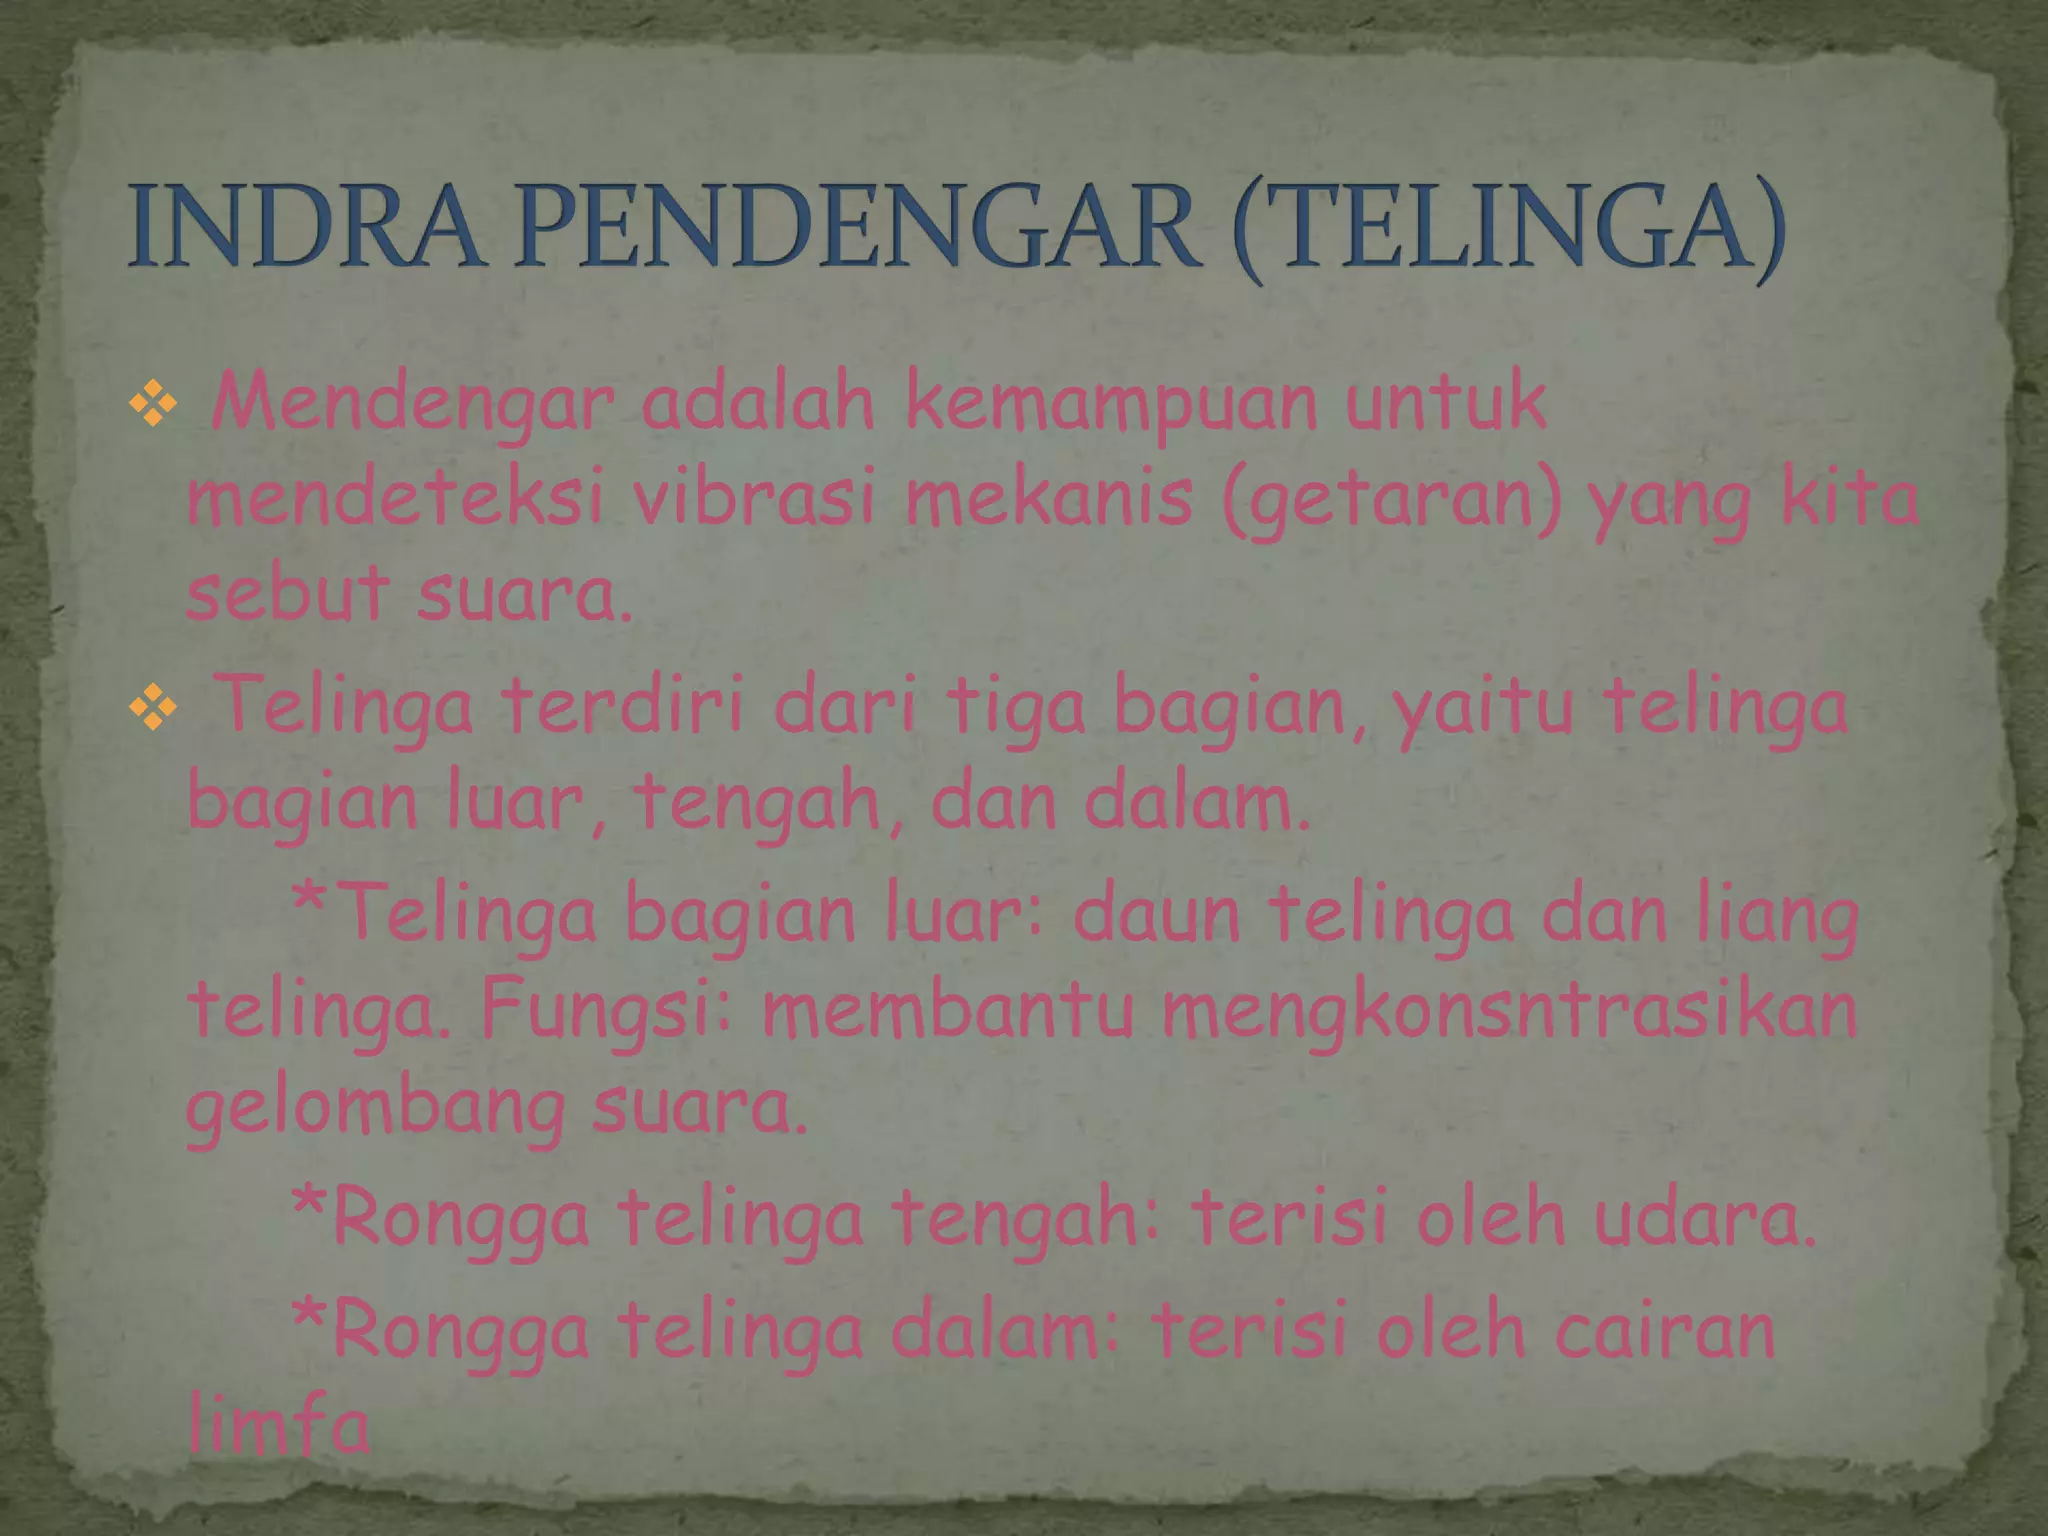 INDRA PENDENGAR (TELINGA)
❖ Mendengar adalah kemampuan untuk
mendeteksi vibrasi mekanis (getaran) yang kita
sebut suara.
❖ Telinga terdiri dari tiga bagian, yaitu telinga
bagian luar, tengah, dan dalam.
*Telinga bagian luar: daun telinga dan liang
telinga. Fungsi: membantu mengkonsntrasikan
gelombang suara.
*Rongga telinga tengah: terisi oleh udara.
*Rongga telinga dalam: terisi oleh cairan
limfa